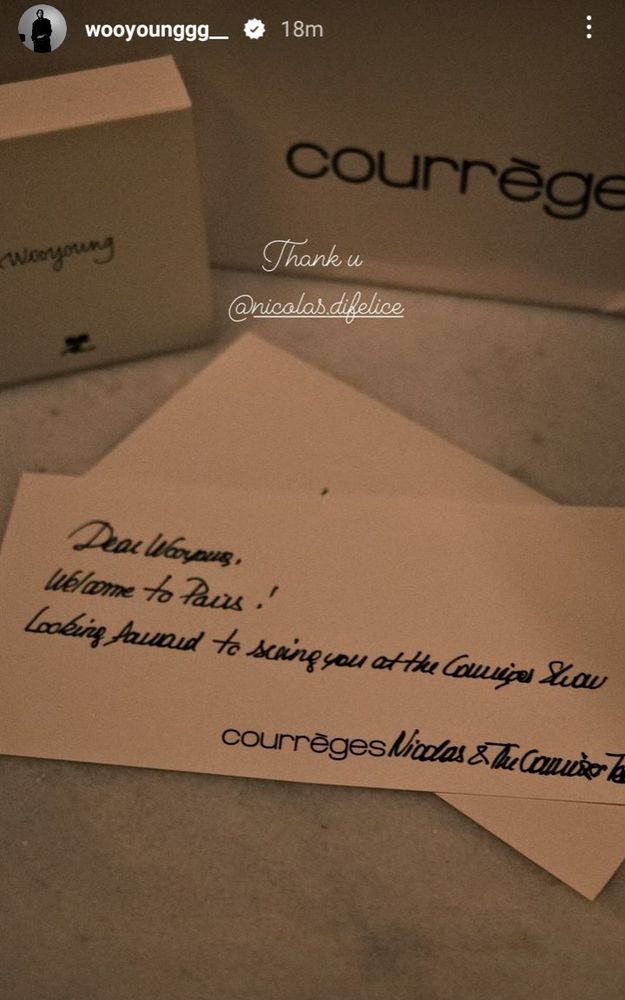 wooyounggg__ 18m
courrège
Wooyoung
Thank u
@nicolas.difelice
Dear Wooyoung,
Welcome to Paris !
Looking forward to seeing you at the Courrèges Show
courrèges Nicolas & The Courrèges Te